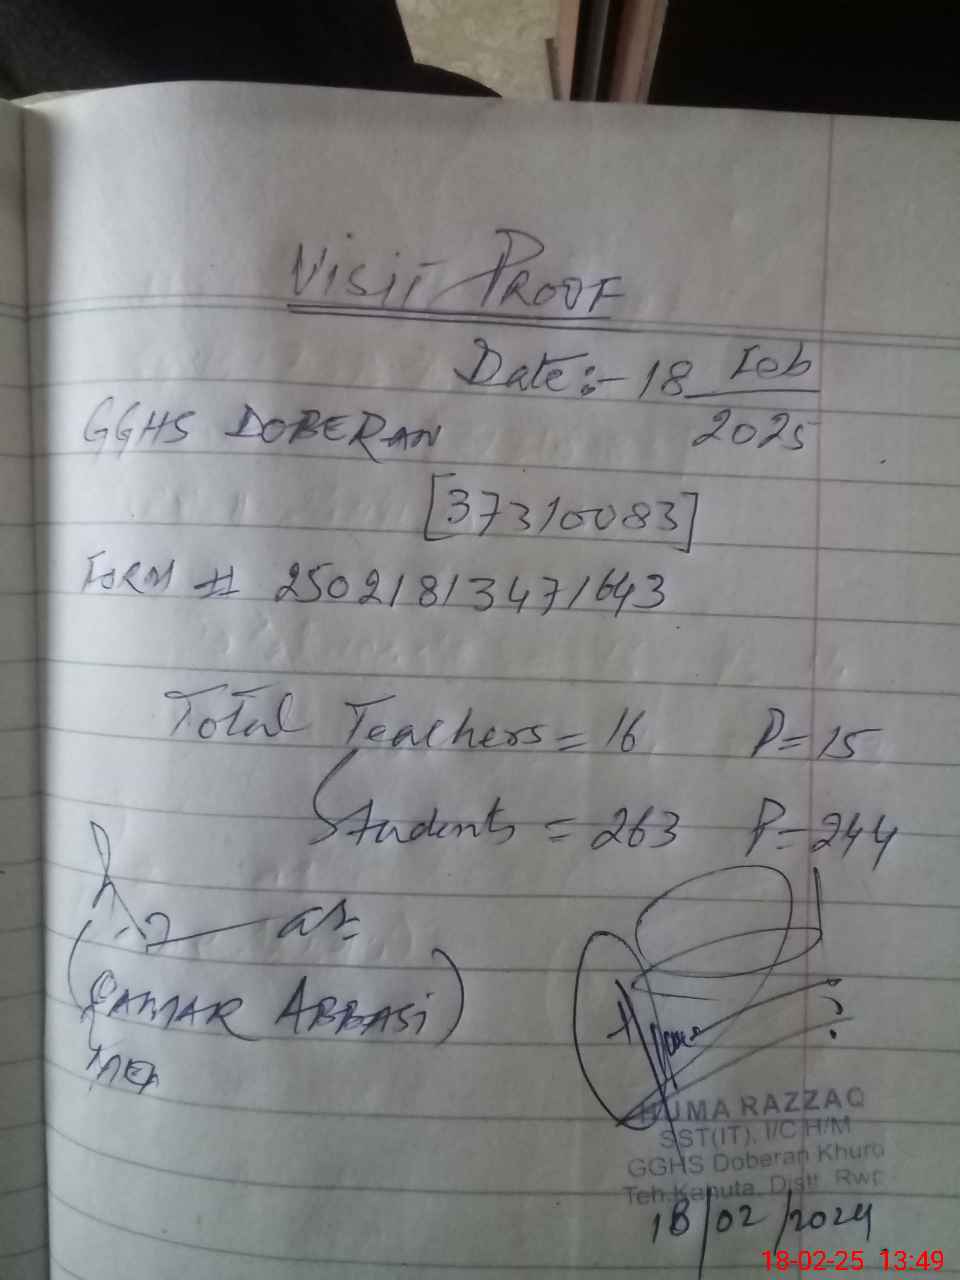 VISIT PROOF
Date:- 18 Feb
2025
GGHS DOBERAN
[37310083]
FORM # 25021813471643
Total Teachers = 16 P=15
Students = 263 P=244
(QAMAR ABBASI)
MEA
HUMA RAZZAQ
SST(IT), I/C H/M
GGHS Doberan Khurd
Teh.Kahuta, Distt. Rwp
18/02/2024
18-02-25 13:49